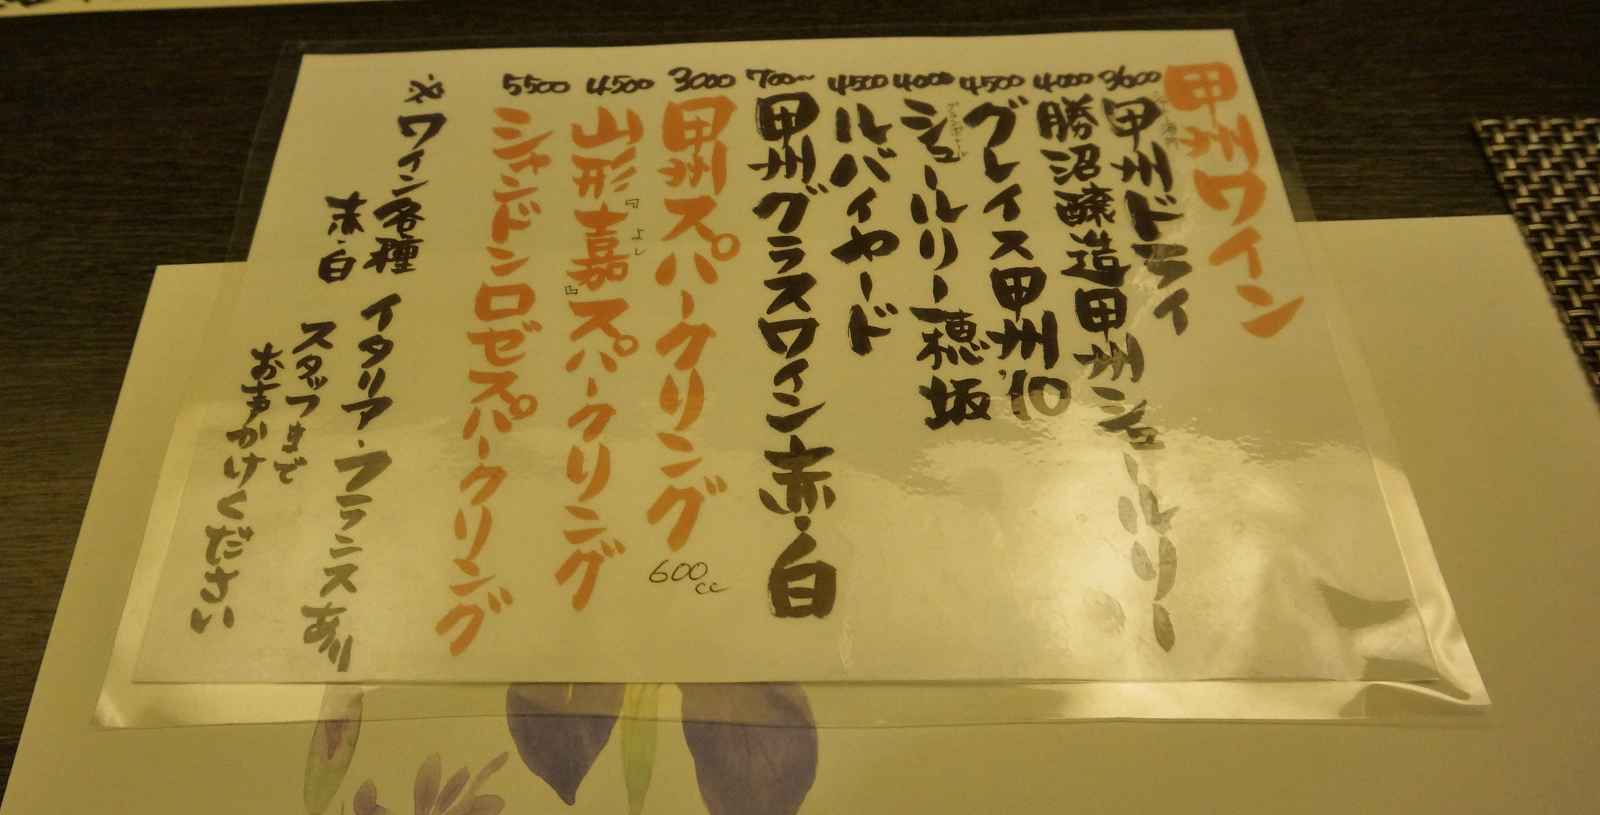 甲州ワイン
3000 甲州ドライ
4000 勝沼醸造甲州シュールリー
4500 グレイス甲州'10
4000 シュールリー穂坂
4500 ルバイヤード
700〜 甲州グラスワイン赤・白
3000 甲州スパークリング 600cc
4500 山形『嘉』スパークリング
よし
5500 シャンドンロゼスパークリング
※ワイン各種 イタリア・フランスあり
赤・白 スタッフまで
お声かけください